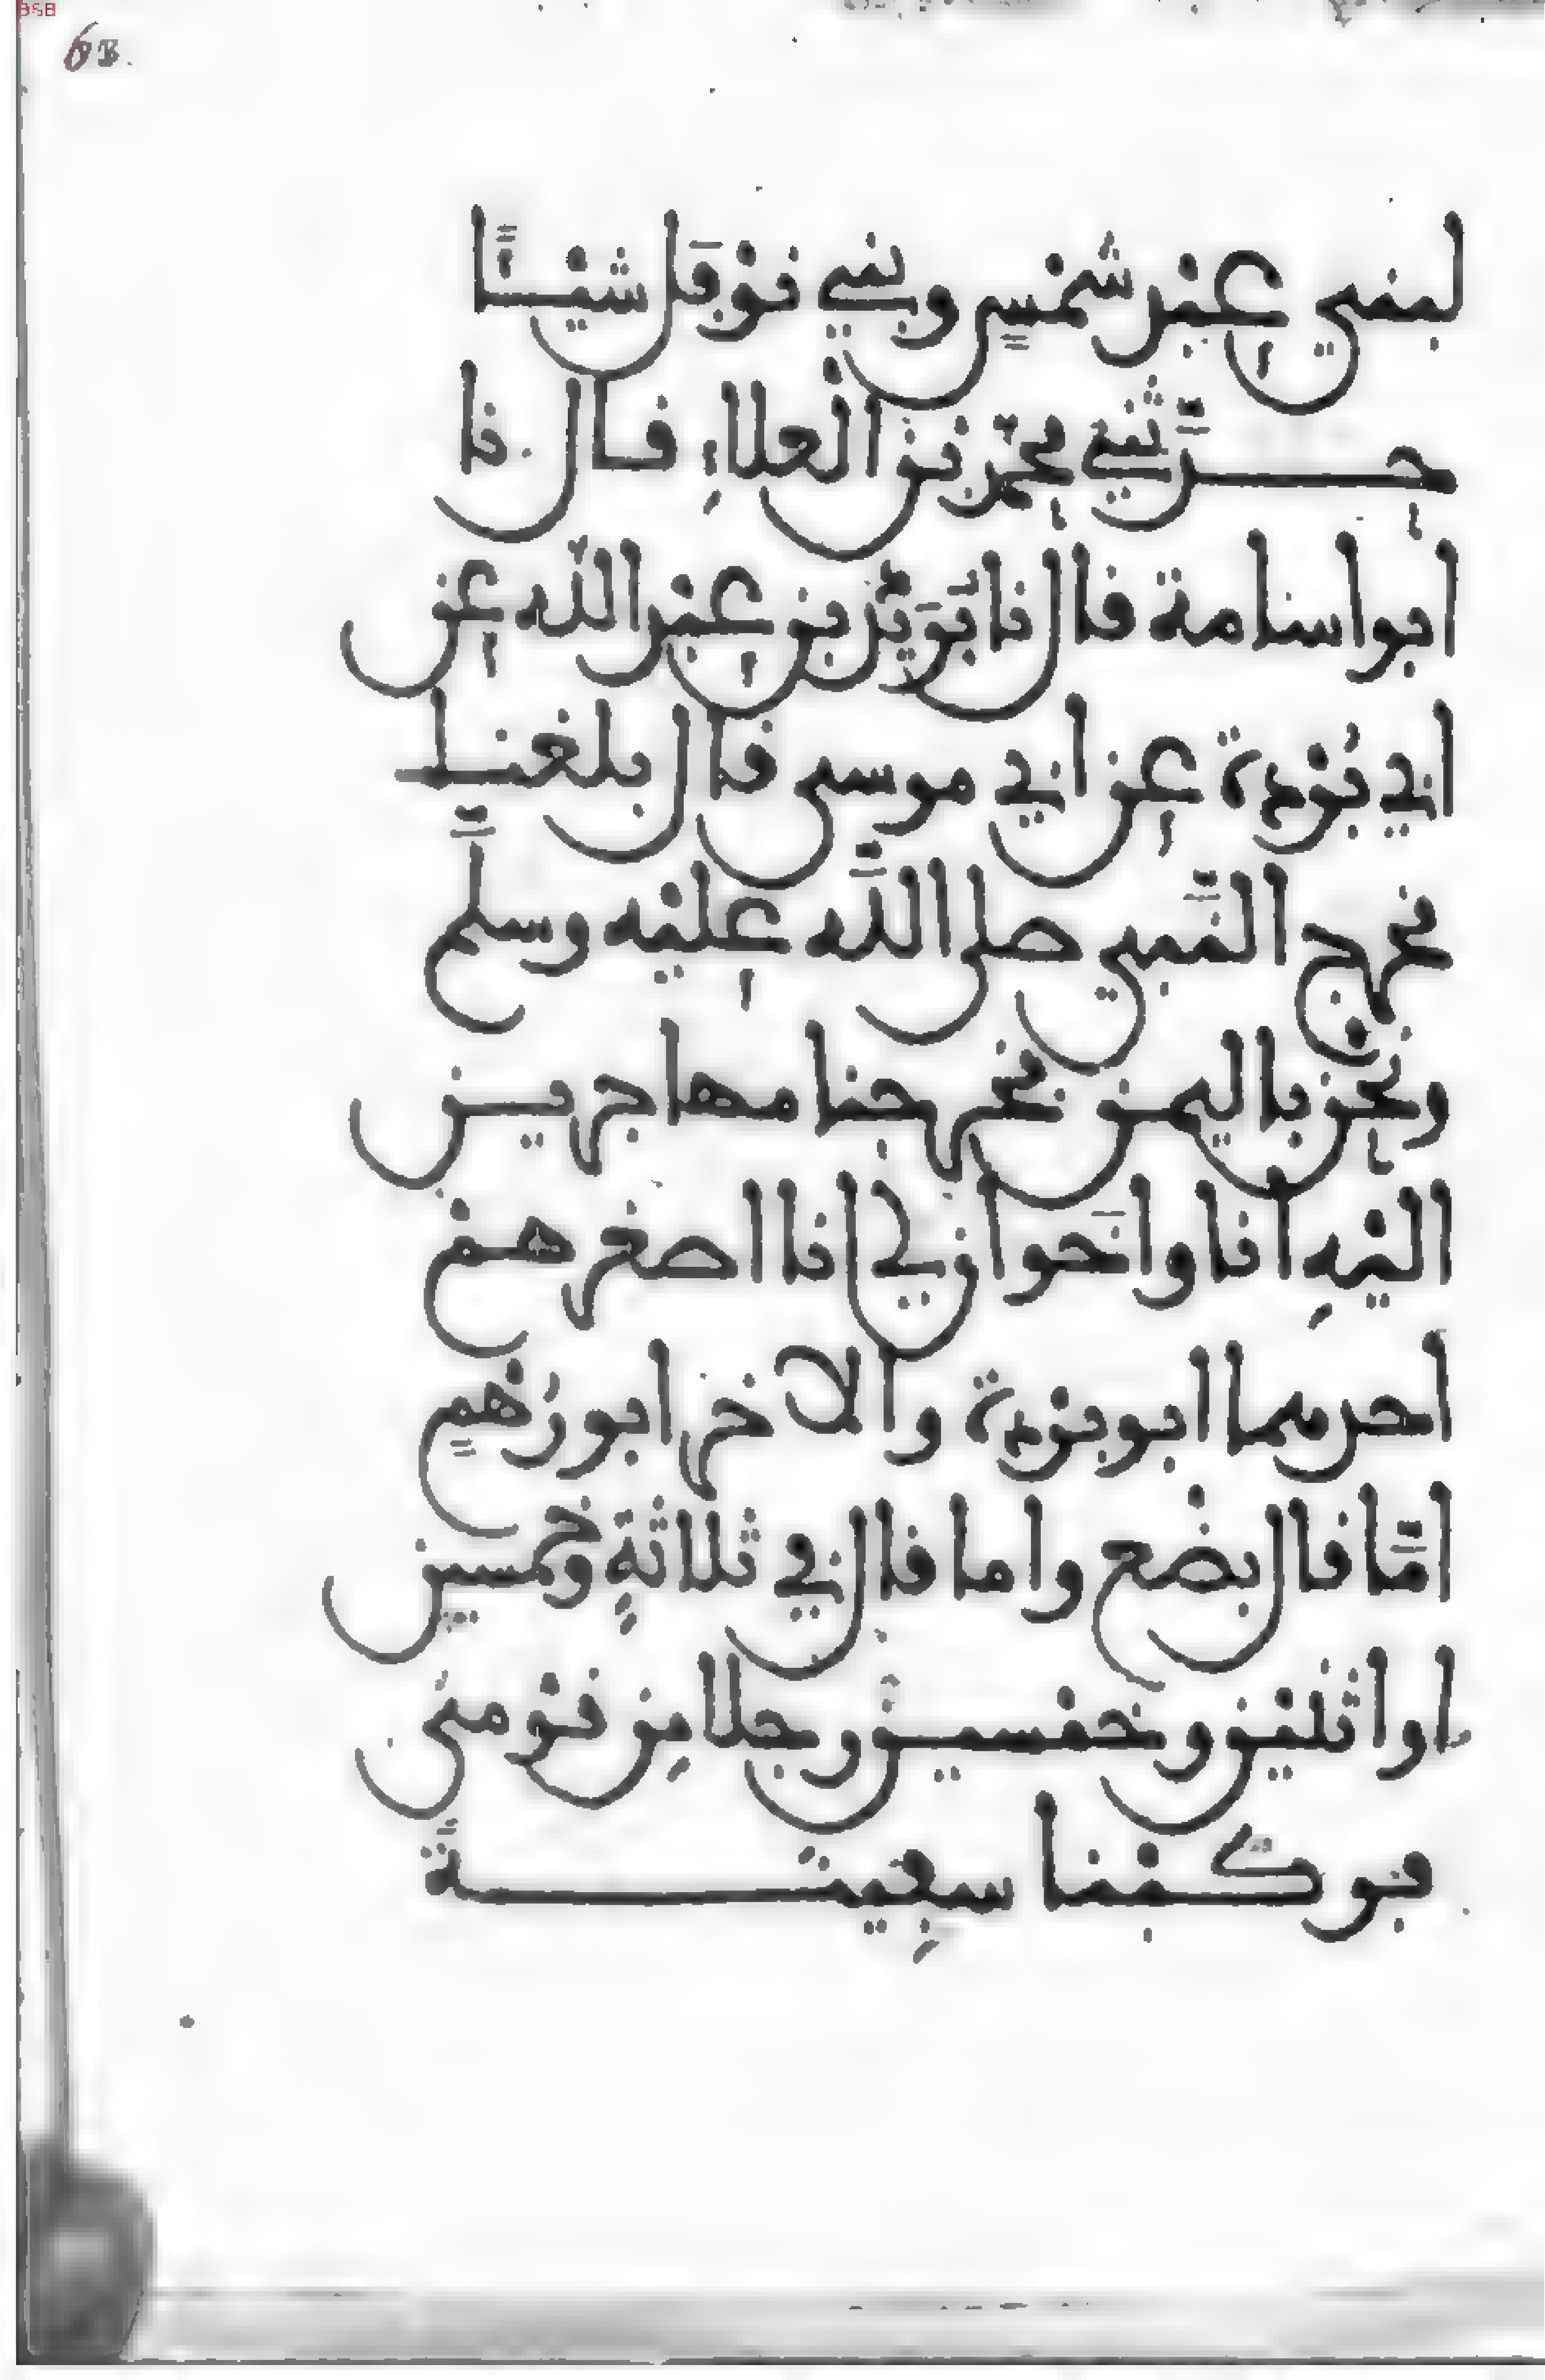 6B.
لبني عبد شمسٍ وبني نوفل شيئًا
حدَّثني محمد بن العلاءِ قال نا
ابو اسامة قال نا بُرَيْد بن عبد الله عن
ابي بُرْدة عن ابي موسى قال بلغنا
مخرج النَّبي صلى اللَّه عليْه وسلَّم
ونحن باليمن فخرجنا مهاجرين
اليْهِ انا واخَوان لي انا اصغرهمْ
احدهما ابو بردة والاخر ابو رُهْمٍ
امَّا قال بضْع واما قال في ثلاثةٍ وخمسين
او اثنيْن وخمْسين رجلا مِن قوْمي
فركبْنا سفِينةً